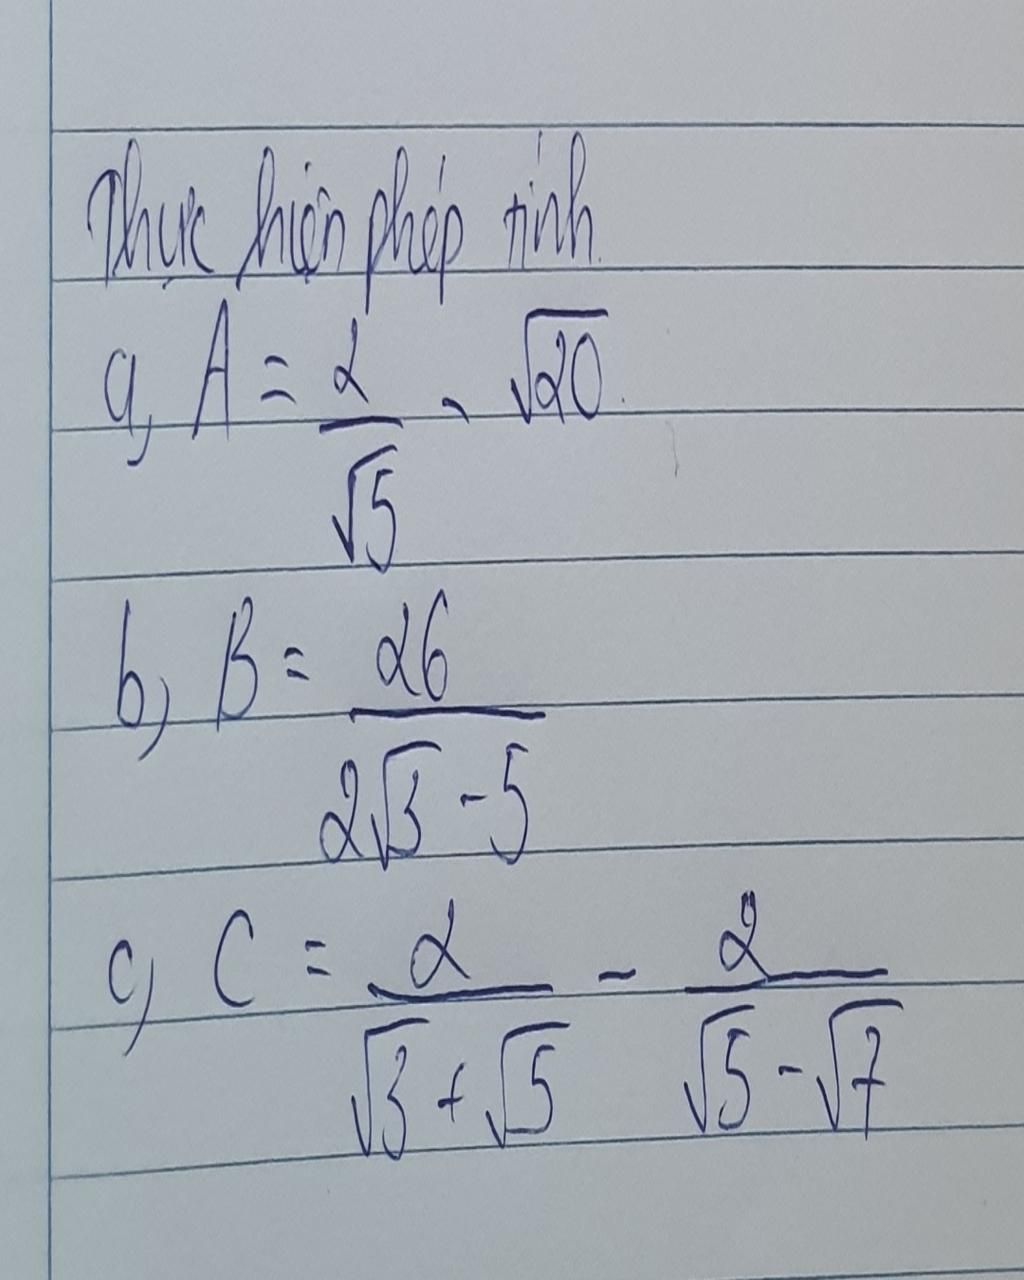 Thực hiện phép tính.
a, A = 2/√5 - √20.
b, B = 26/(2√3 - 5)
c, C = 2/(√3 + √5) - 2/(√5 - √7)